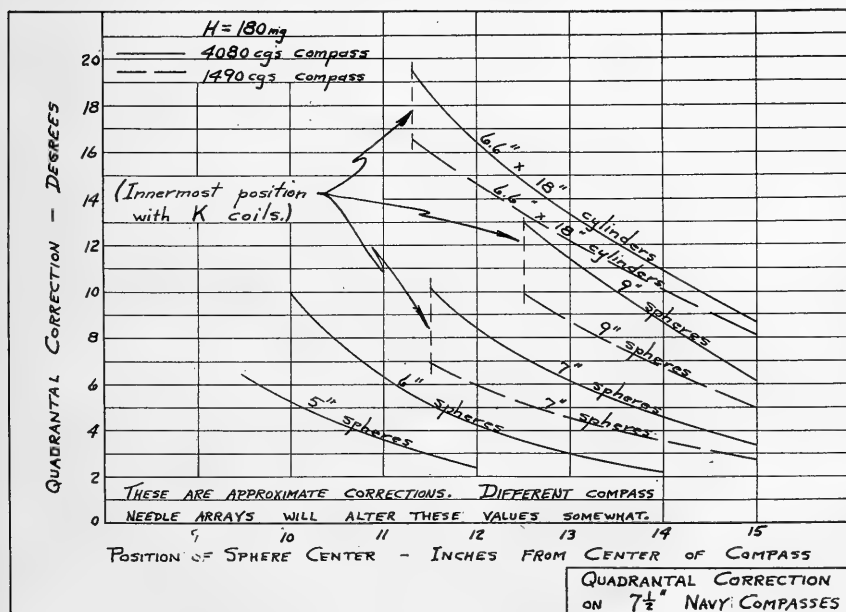 H = 180 mg
4080 cgs compass
1490 cgs compass
QUADRANTAL CORRECTION — DEGREES
20
18
16
14
12
10
8
6
4
2
0
(Innermost position
with K coils.)
6.6" x 18" cylinders
6.6" x 18" cylinders
9" spheres
9" spheres
7" spheres
7" spheres
6" spheres
5" spheres
THESE ARE APPROXIMATE CORRECTIONS. DIFFERENT COMPASS
NEEDLE ARRAYS WILL ALTER THESE VALUES SOMEWHAT.
9 10 11 12 13 14 15
POSITION OF SPHERE CENTER - INCHES FROM CENTER OF COMPASS
QUADRANTAL CORRECTION
ON 7½" NAVY COMPASSES